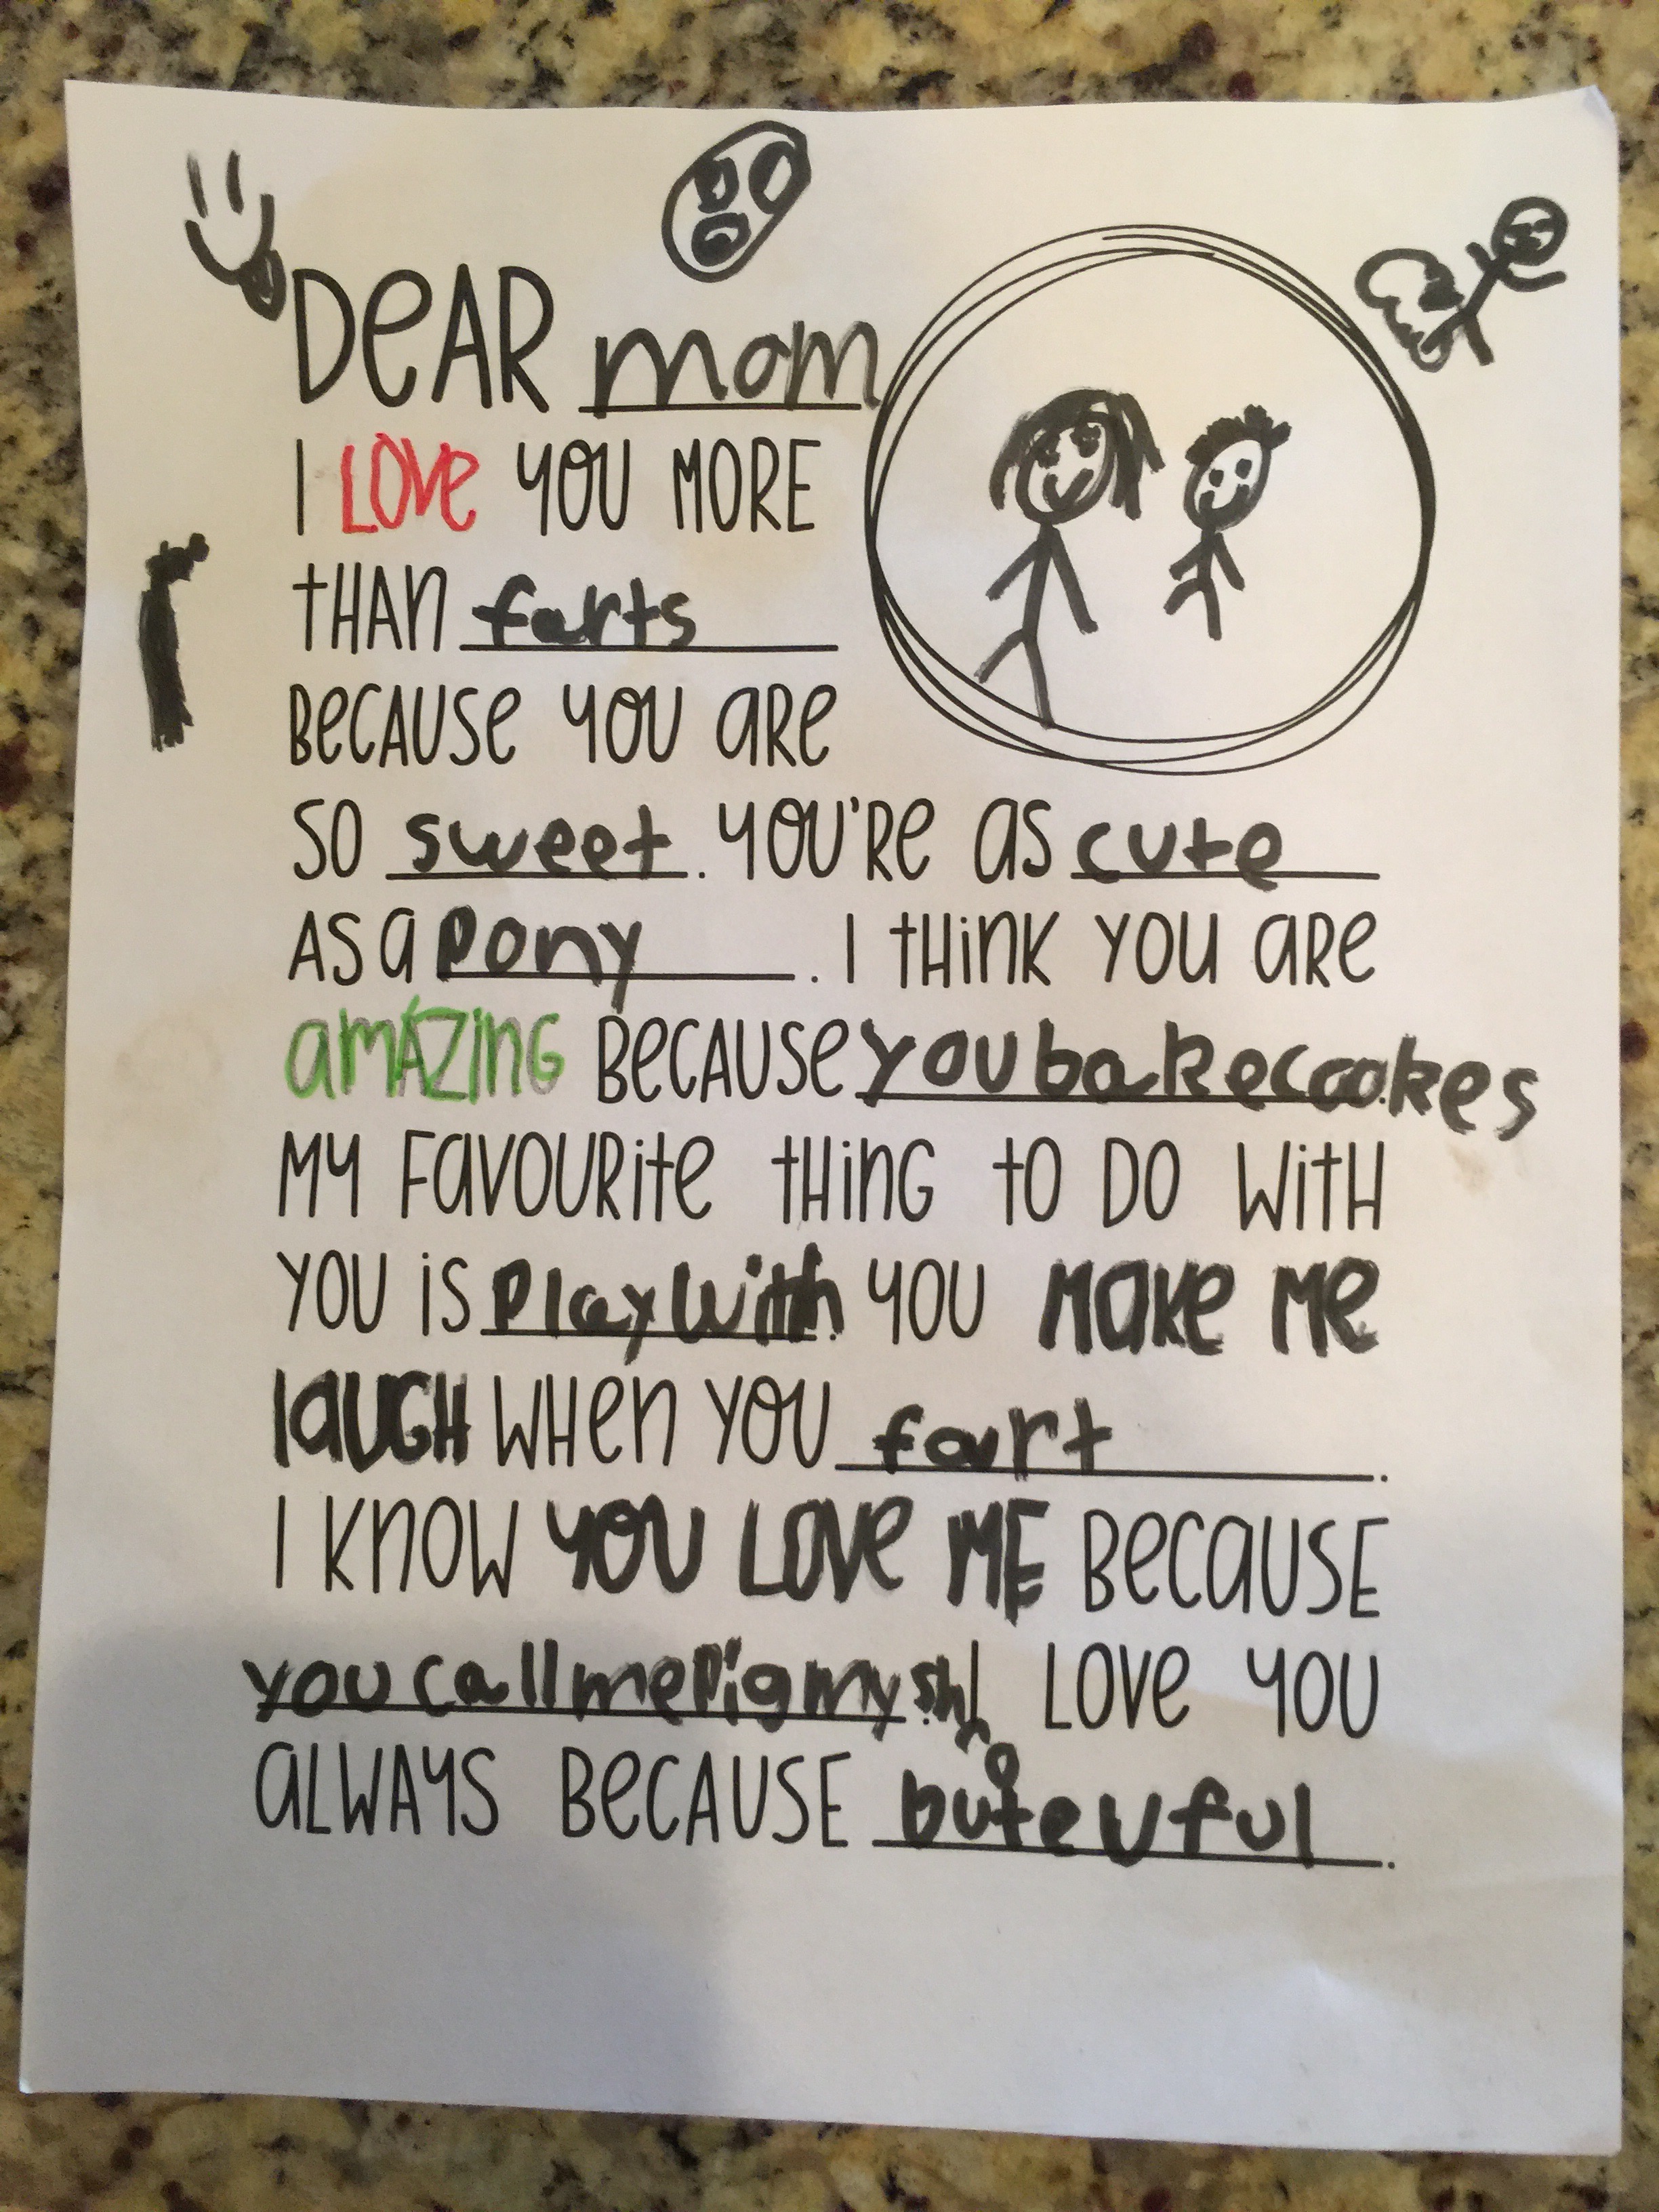 DeAR mom
I LOVe YOU MORE
tHAn farts
BeCAUSe YOU aRe
SO sweet. YOU'Re aS cute
AS a Pony. I tHinK YOU aRe
amAZinG BeCAUSe you bakecookes.
MY FavOURite tHinG tO DO WitH
YOU iS Play with. YOU MaKe Me
laUGH WHen YOU fart.
I KnOW YOU LOVe ME BeCaUSE
you call me Pig my. I LOVe YOU
aLWAYS BeCAUSE buteuful.